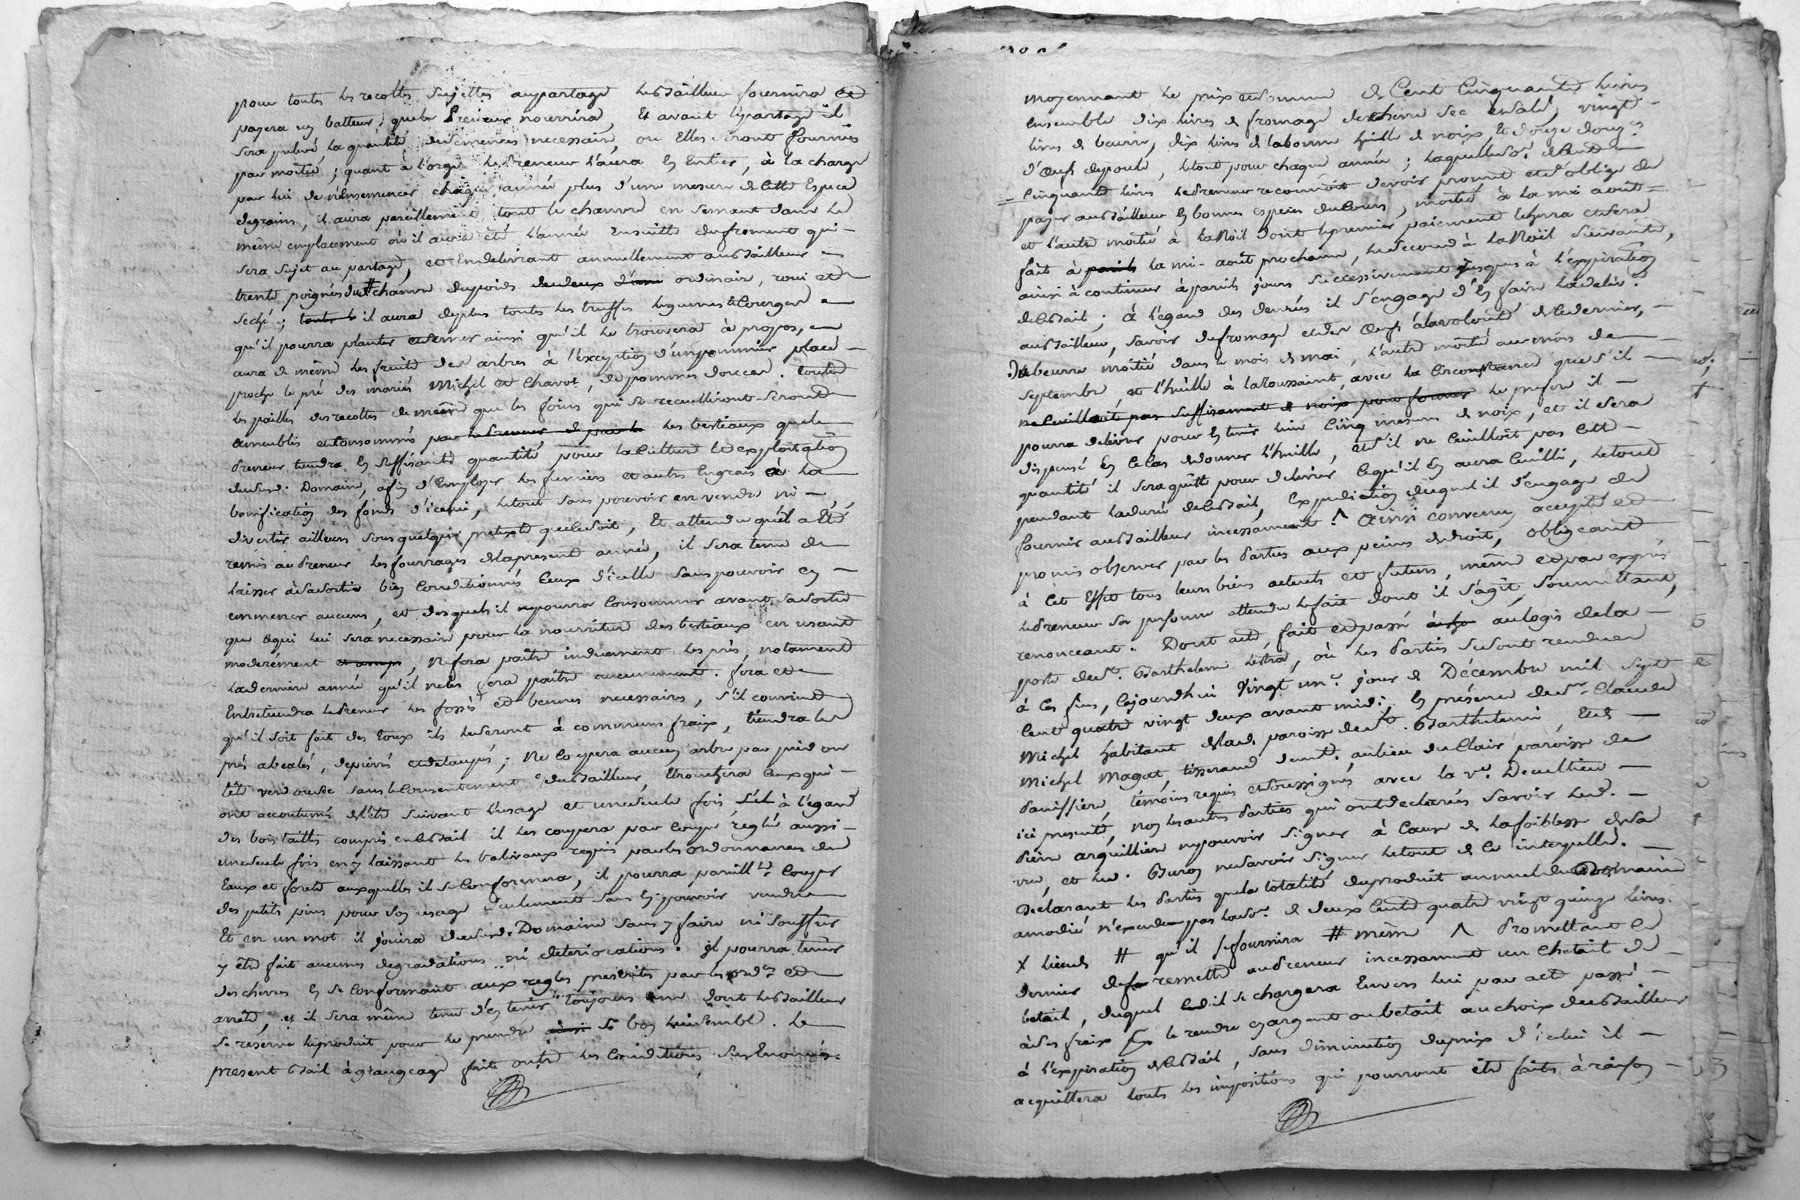 pour toutes les recoltes sujettes au partage le Bailleur fournira et
payera un batteur, que le Preneur nourrira, Et avant le partage il
sera prelevé la quantité de semences necessaire, ou Elles seront fournies
par moitié; quant à l'orge le Preneur l'aura En Entier, à la charge
par lui de n'ensemencer chaque année plus d'une mesure de cette Espece
de grains, il aura pareillement tout le chanvre en semant dans le
même emplacement où il aura été l'année Ensuitte du froment qui
sera sujet au partage, et En delivrant annuellement au Bailleur
trente poignés du chanvre du poids ordinaire, roui et
seché; il aura de plus toutes les truffes legumes et Courges
qu'il pourra planter et semer ainsi qu'il le trouvera à propos,
aura de même les fruits des arbres à l'Exception d'un pommier placé
proche le pré des mariés Michel et Chavot, de pommes douces. Toutes
les pailles des recoltes de même que les foins qui se recueilleront seront
ameublis et Consommés par les bestiaux que le
Preneur tiendra En suffisante quantité pour la Culture et exploitation
dud. Domaine, afin d'Employer les fumiers et autres Engrais à la
bonification des fonds d'icelui, le tout sans pouvoir en vendre ni
divertir ailleurs sous quelque pretexte que ce soit, Et attendu qu'il a Eté
remis au Preneur les fourrages de la present année, il sera tenu de
laisser à sa sortie bien Conditionnés Ceux d'icelle sans pouvoir en
emmener aucuns, et desquels il ne pourra Consommer avant sa sortie
que ce qui lui sera necessaire pour la nourriture des bestiaux en usant
moderément, Ne fera paitre induement les prés, notament
la derniere année qu'il ne les fera paitre aucunement. fera et
Entretiendra le Preneur les fossés et bennes necessaires, s'il convient
qu'il soit fait des Eaux ils le seront à communs fraix, tiendra les
prés de pierres et de taupes; Ne Coupera aucun arbre par pied ou
tête verd ou sec sans le Consentement du Bailleur, Ebranchera Ceux qui
ont accoutumé d'Etre suivant l'usage et une seule fois à l'égard
des bois taillis compris au Bail il les coupera par Coupe réglée aussi
une seule fois en y laissant les balivaux requis par les ordonnances de
Eaux et forets auxquelles il se Conformera, il pourra pareill.t Couper
des petits pins pour son usage seulement sans En pouvoir vendre
Et en un mot il jouira dud. Domaine sans y faire ni souffrir
y être fait aucunes degradations ni deteriorations. Il pourra tenir
des chevres En se Conformant aux regles prescrites par les ord.es et
arrêts, et il sera même tenu d'En tenir toujours une dont le Bailleur
se reserve le produit pour le prendre si bon lui semble. Le
present Bail à grangeage fait outre les Conditions sus Enoncées
moyennant le prix et somme de Cent Cinquante livres
ensemble dix livres de fromage de chevre sec et salé, vingt
livres de beurre, dix livres de la bonne huille de noix et douze douzes
d'œufs de poule, le tout pour chaque année; laquelle de Cent
Cinquante livres le Preneur reconnoit devoir promet et s'oblige de
payer au Bailleur En bonnes especes de Cours, moitié à la mi aout
et l'autre moitié à la Noël dont le premier paiement Echerra et sera
fait à la mi-août prochaine, le second à la Noël suivante,
ainsi à continuer à pareils jours successivement jusques à l'expiration
du Bail; à l'égard des denrées il s'engage d'En faire la deliv.
au Bailleur, savoir du fromage et des œufs à la volonté de ce dernier,
du beurre moitié dans le mois de mai, l'autre moitié au mois de
septembre, et l'huille à la Toussaint, avec la Circonstance que s'il
ne Cuilloit pas suffisament de noix pour fournir le presse il
pourra delivrer pour En tenir lieu Cinq mesures de noix, et il sera
dispensé En ce Cas de donner l'huille, et s'il ne Cuilloit pas Cette
quantité il sera quitte pour delivrer Ce qu'il En aura Cuilli, le tout
pendant la durée du Bail, Expedition duquel il s'engage de
fournir au Bailleur incessament. ^ Ainsi convenu accepté et
promis observer par les Parties aux peines de droit, obligeant
à Cet Effet tous leurs biens actuels et futurs, même et par exprès
le Preneur sa personne attendu le fait dont il s'agit, soumettant,
renonceant. Dont acte, fait et passé au logis de la
porte de St. Barthelemi Lestra, où les Parties se sont rendues
à Ces fins, Cejourdhui Vingt un.e jour de Décembre mil sept
Cent quatre vingt deux avant midi, En présence de Sr. Claude
Michel habitant aud. paroisse de St. Barthelemi, Et de
Michel Magat, tisserand dem.t au lieu du Clair paroisse de
Panissiere, témoins requis et soussignés avec la v.e Decultieu
ici presente, non les autres Parties qui ont declarées savoir led.
Pierre arquillier ne pouvoir signer à Cause de la foiblesse de sa
vue, et lad. Buron ne savoir signer le tout de ce interpellé.
Declarant les Parties que la totalité du produit annuel du Domaine
amodié n'excede pas la so.e de deux Cents quatre vingt quinze livres.
X lieues # qu'il se fournira # même ^ Promettant Ce
dernier de remettre au Preneur incessament un Chetail de
betail, duquel led. il se chargera Envers lui par acte passé
à ses fraix pour le rendre en argent ou betail au choix du Bailleur
à l'expiration du Bail, sans diminution du prix d'icelui il
acquittera toutes les impositions qui pourront être faites à raison